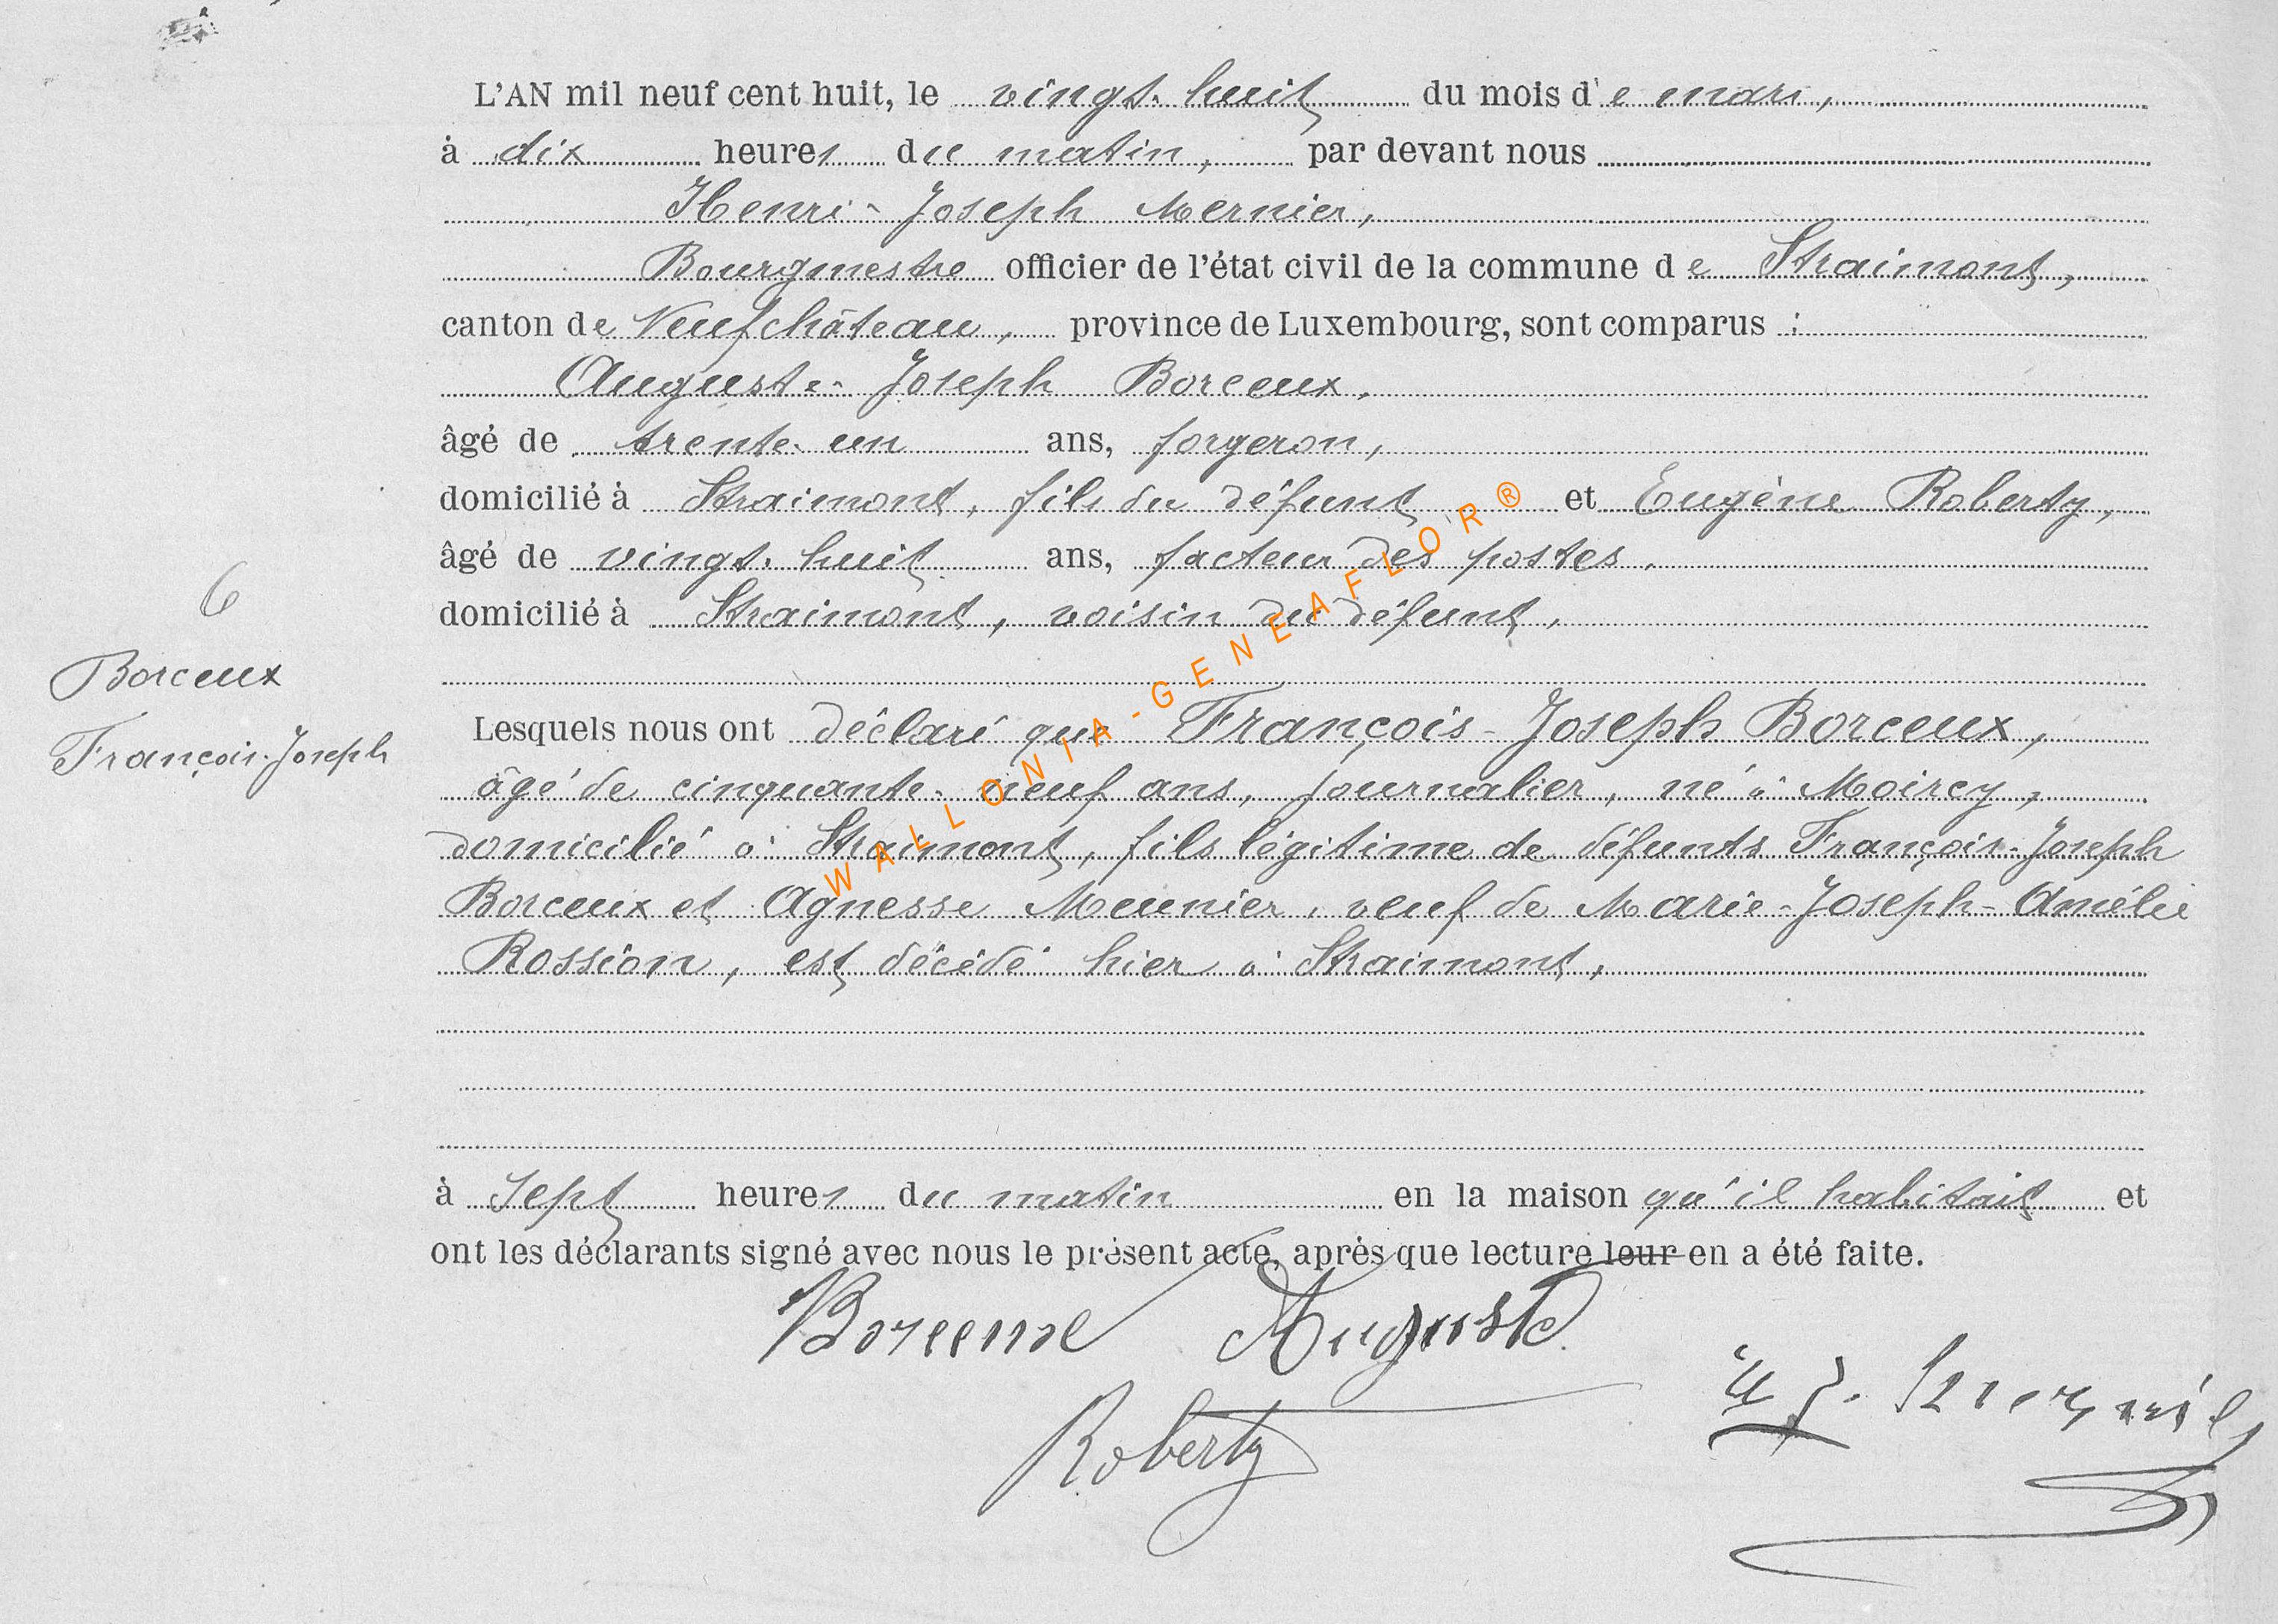 L'AN mil neuf cent huit, le vingt-huit du mois de mars,
à dix heures du matin, par devant nous
Henri-Joseph Mernier,
Bourgmestre officier de l'état civil de la commune de Straimont,
canton de Neufchâteau, province de Luxembourg, sont comparus :
Auguste-Joseph Borceux,
âgé de trente-un ans, forgeron,
domicilié à Straimont, fils du défunt et Eugène Roberty,
âgé de vingt-huit ans, facteur des postes,
domicilié à Straimont, voisin du défunt,
6
Borceux
François-Joseph
Lesquels nous ont déclaré que François-Joseph Borceux,
âgé de cinquante-neuf ans, journalier, né à Moircy,
domicilié à Straimont, fils légitime de défunts François-Joseph
Borceux et Agnesse Meunier, veuf de Marie-Joseph-Amélie
Rossion, est décédé hier à Straimont,
à sept heures du matin en la maison qu'il habitait et
ont les déclarants signé avec nous le présent acte, après que lecture leur en a été faite.
Borceux Auguste
H J. Mernier
Roberty
WALLONIA-GENEAFLOR®